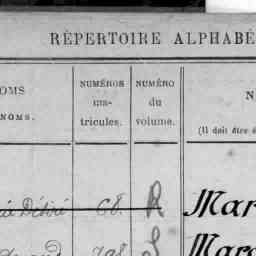 RÉPERTOIRE ALPHABÉ
OMS
NOMS.
NUMÉROS
ma-
tricules.
NUMÉRO
du
volume.
N
(Il doit être é
Désiré 68. R Mar
798 S Marc